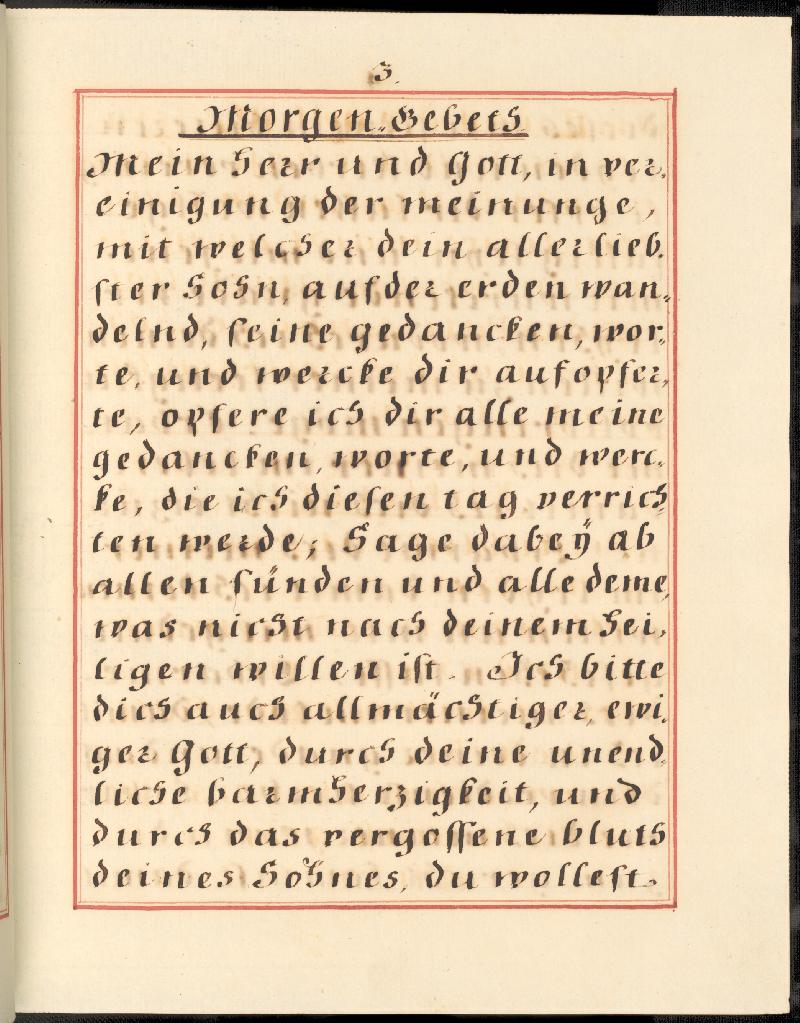 3.
Morgen-Gebeth
Mein herr und Gott, in ver-
einigung der meinunge,
mit welcher dein allerlieb-
ster Sohn, auf der erden wan-
delnd, seine gedancken, wor-
te, und wercke dir aufopfer-
te, opfere ich dir alle meine
gedancken, worte, und werc-
ke, die ich diesen tag verrich-
ten werde; Sage dabeÿ ab
allen sünden und alle deme,
was nicht nach deinem hei-
ligen willen ist. Ich bitte
dich auch allmächtiger, ewi-
ger Gott, durch deine unend-
liche barmherzigkeit, und
durch das vergossene bluth
deines Sohnes, du wollest